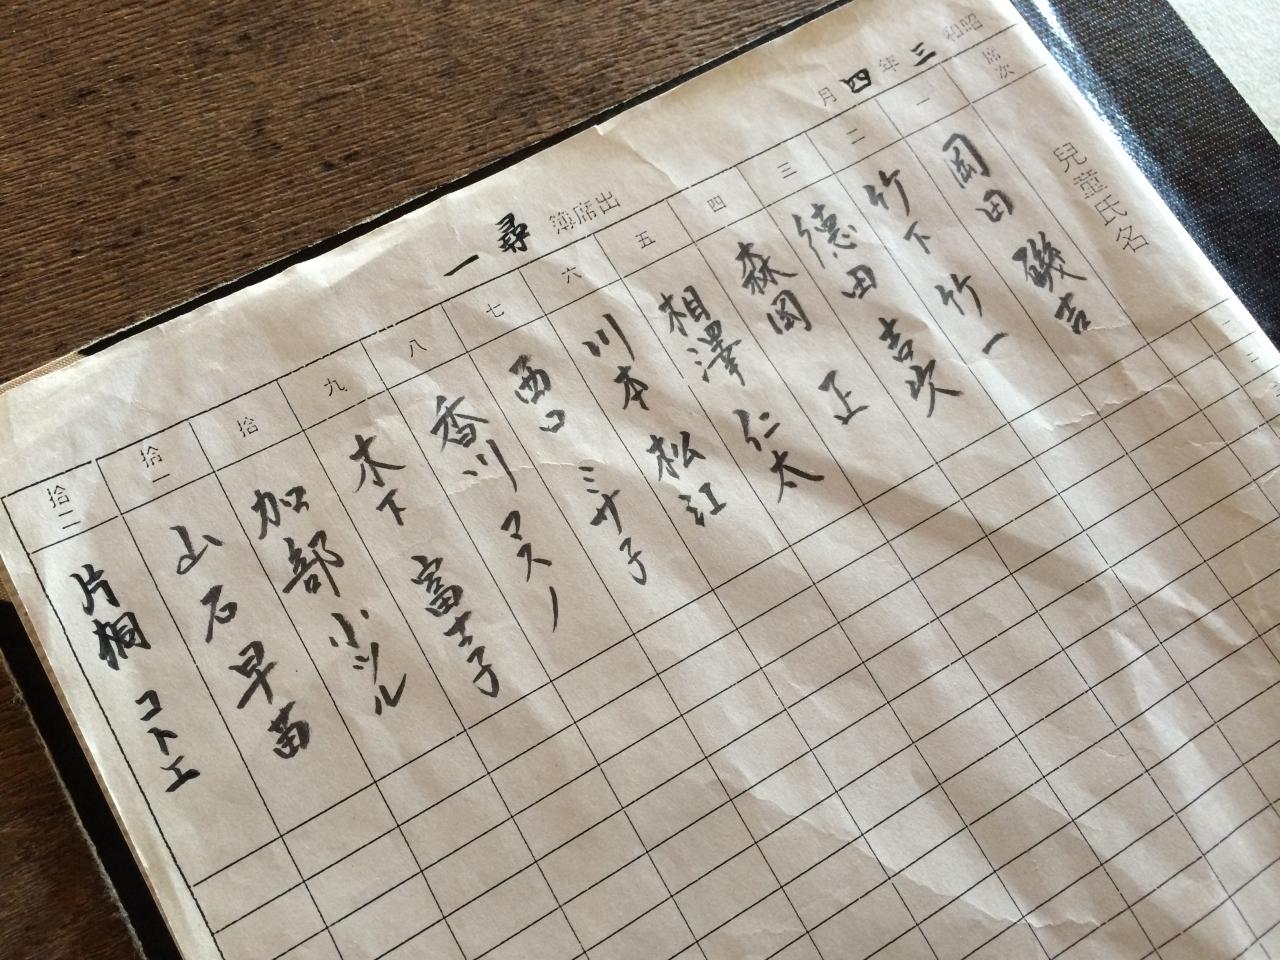 昭和三年四月
出席簿 尋一
席次
兒童氏名
一 岡田 磯吉
二 竹下 竹一
三 德田 吉次
四 森岡 正
五 相澤 仁太
六 川本 松江
七 西口 ミサ子
八 香川 マスノ
九 木下 富士子
拾 加部 小ツル
拾一 山石 早苗
拾二 片桐 コトエ
一
二